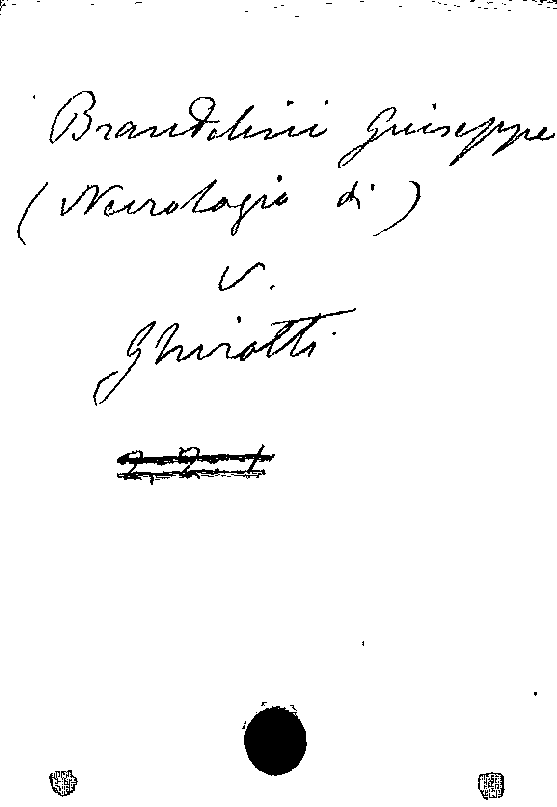 Brandolini Giuseppe
(Necrologio di)
V.
Ghirotti